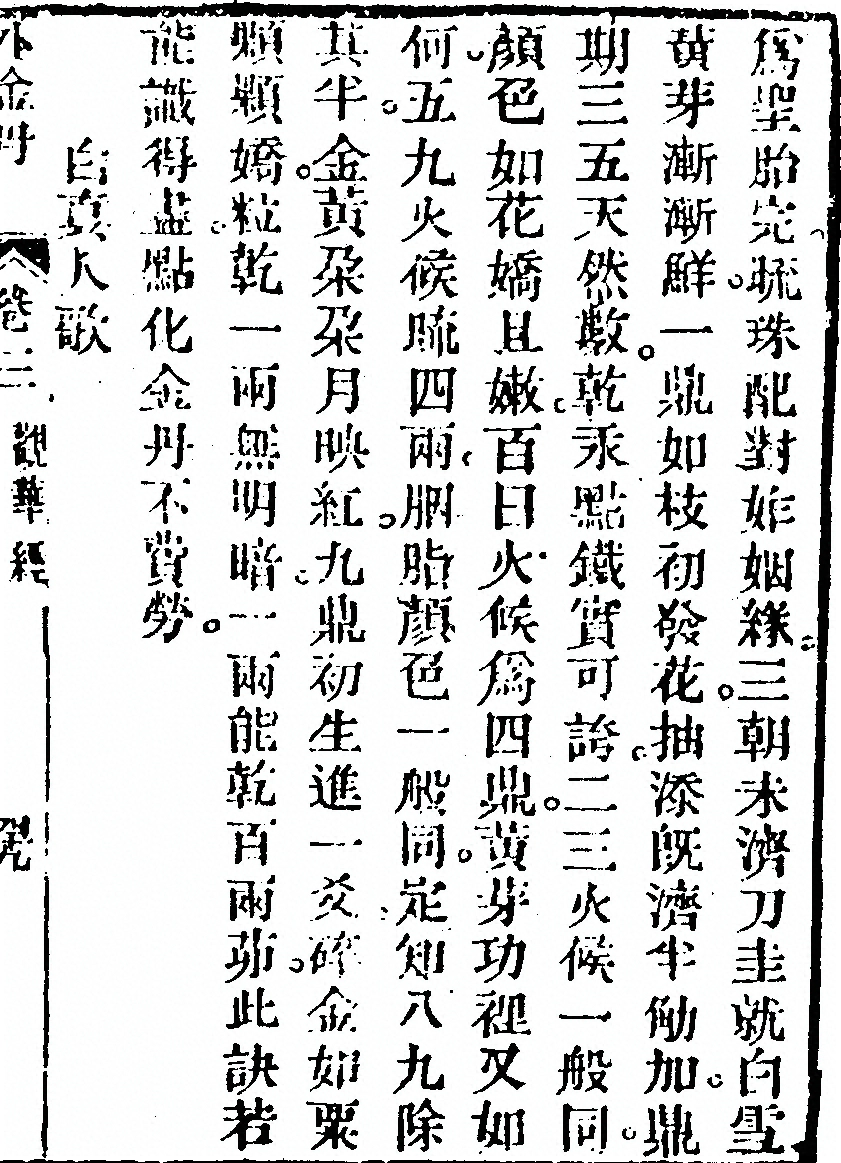 為聖胎完硫珠配對妳姻緣。三朝未濟刀圭就白雪
黃芽漸漸鮮。一鼎如枝初發花。抽添既濟半觔加。鼎
期三五天然數。乾汞點鐵實可誇。二三火候一般同。
顏色如花嬌且嫩。百日火候爲四鼎。黃芽功裡又如
何。五九火候硫四兩。胭脂顏色一般同。定知八九除
其半。金黃朶朶月映紅。九鼎初生進一爻。碎金如粟
顆顆嬌。粒乾一兩無明暗。一兩能乾百兩茆。此訣若
能識得盡。點化金丹不費勞。
白眞人歌
外金丹
卷二
觀華經